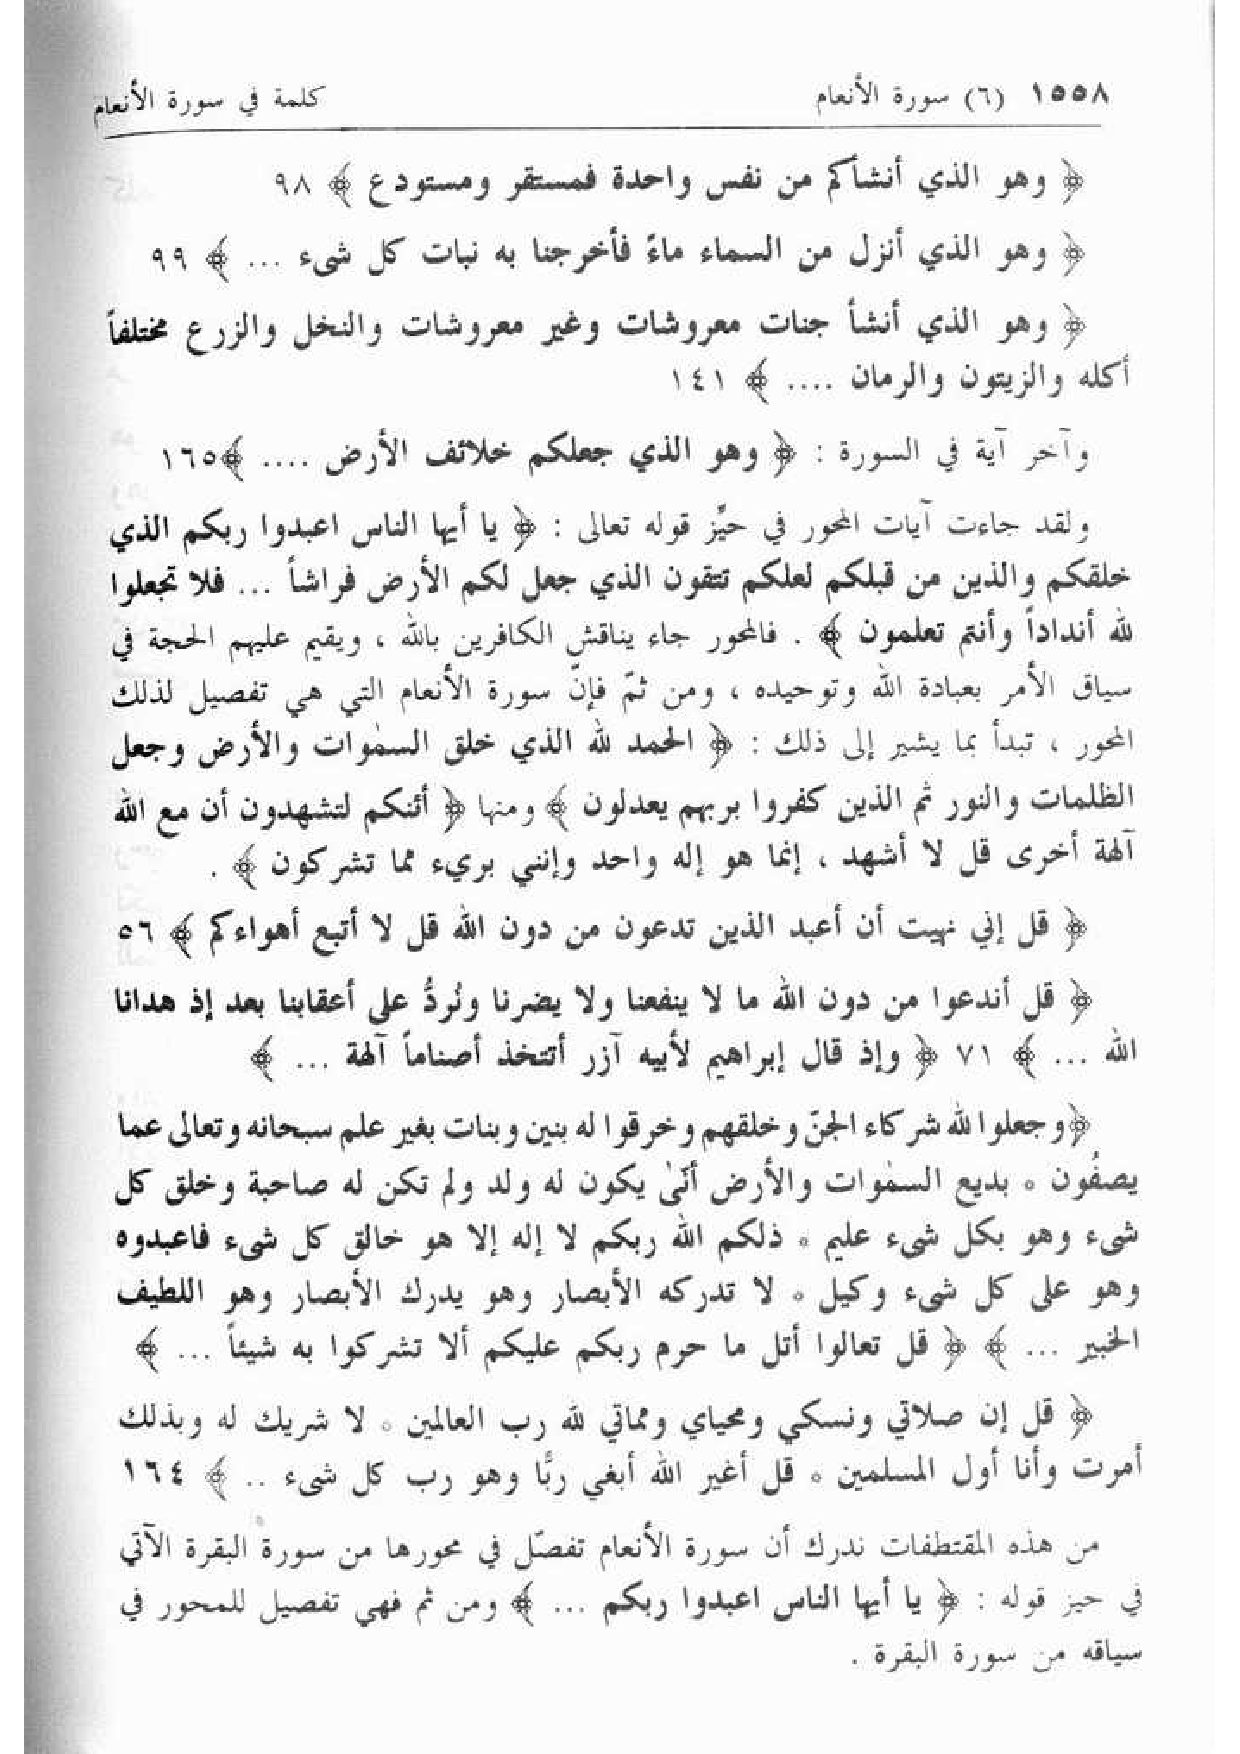 ١٥٥٨ (٦) سورة الأنعام كلمة في سورة الأنعام
﴿ وهو الذي أنشأكم من نفس واحدة فمستقر ومستودع ﴾ ٩٨
﴿ وهو الذي أنزل من السماء ماءً فأخرجنا به نبات كل شىء ... ﴾ ٩٩
﴿ وهو الذي أنشأ جنات معروشات وغير معروشات والنخل والزرع مختلفاً
أكله والزيتون والرمان .... ﴾ ١٤١
وآخر آية في السورة : ﴿ وهو الذي جعلكم خلائف الأرض .... ﴾١٦٥
ولقد جاءت آيات المحور في حيِّز قوله تعالى : ﴿ يا أيها الناس اعبدوا ربكم الذي
خلقكم والذين من قبلكم لعلكم تتقون الذي جعل لكم الأرض فراشاً ... فلا تجعلوا
لله أنداداً وأنتم تعلمون ﴾ . فالمحور جاء يناقش الكافرين بالله ، ويقيم عليهم الحجة في
سياق الأمر بعبادة الله وتوحيده ، ومن ثمّ فإنّ سورة الأنعام التي هي تفصيل لذلك
المحور ، تبدأ بما يشير إلى ذلك : ﴿ الحمد لله الذي خلق السمٰوات والأرض وجعل
الظلمات والنور ثم الذين كفروا بربهم يعدلون ﴾ ومنها ﴿ أئنكم لتشهدون أن مع الله
آلهة أخرى قل لا أشهد ، إنما هو إله واحد وإنني بريء مما تشركون ﴾ .
﴿ قل إني نهيت أن أعبد الذين تدعون من دون الله قل لا أتبع أهواءكم ﴾ ٥٦
﴿ قل أندعوا من دون الله ما لا ينفعنا ولا يضرنا ونُردُّ على أعقابنا بعد إذ هدانا
الله ... ﴾ ٧١ ﴿ وإذ قال إبراهيم لأبيه آزر أتتخذ أصناماً آلهة ... ﴾
﴿وجعلوا لله شركاء الجنّ وخلقهم وخرقوا له بنين وبنات بغير علم سبحانه وتعالى عما
يصفُون ۝ بديع السمٰوات والأرض أنّىٰ يكون له ولد ولم تكن له صاحبة وخلق كل
شىء وهو بكل شىء عليم ۝ ذلكم الله ربكم لا إله إلا هو خالق كل شىء فاعبدوه
وهو على كل شىء وكيل ۝ لا تدركه الأبصار وهو يدرك الأبصار وهو اللطيف
الخبير ... ﴾ ﴿ قل تعالوا أتل ما حرم ربكم عليكم ألا تشركوا به شيئاً ... ﴾
﴿ قل إن صلاتي ونسكي ومحياي ومماتي لله رب العالمين ۝ لا شريك له وبذلك
أمرت وأنا أول المسلمين ۝ قل أغير الله أبغي ربًّا وهو رب كل شىء .. ﴾ ١٦٤
من هذه المقتطفات ندرك أن سورة الأنعام تفصّل في محورها من سورة البقرة الآتي
في حيز قوله : ﴿ يا أيها الناس اعبدوا ربكم ... ﴾ ومن ثم فهي تفصيل للمحور في
سياقه من سورة البقرة .